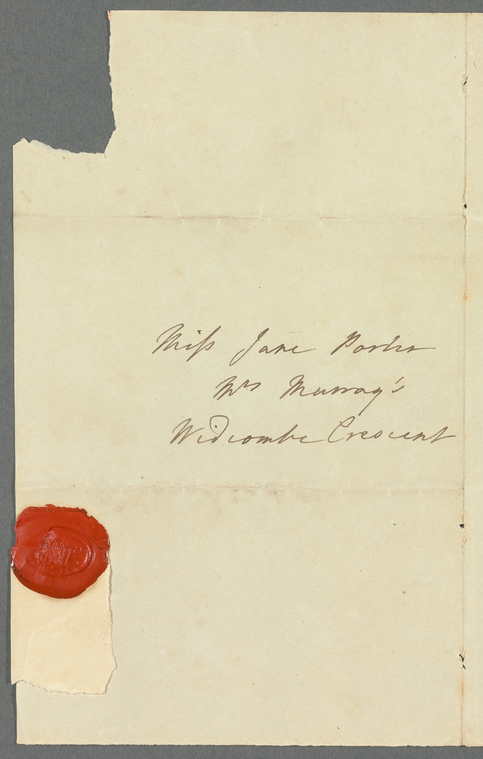 Miss Jane Porter
Mrs Murray's
Widcombe Crescent